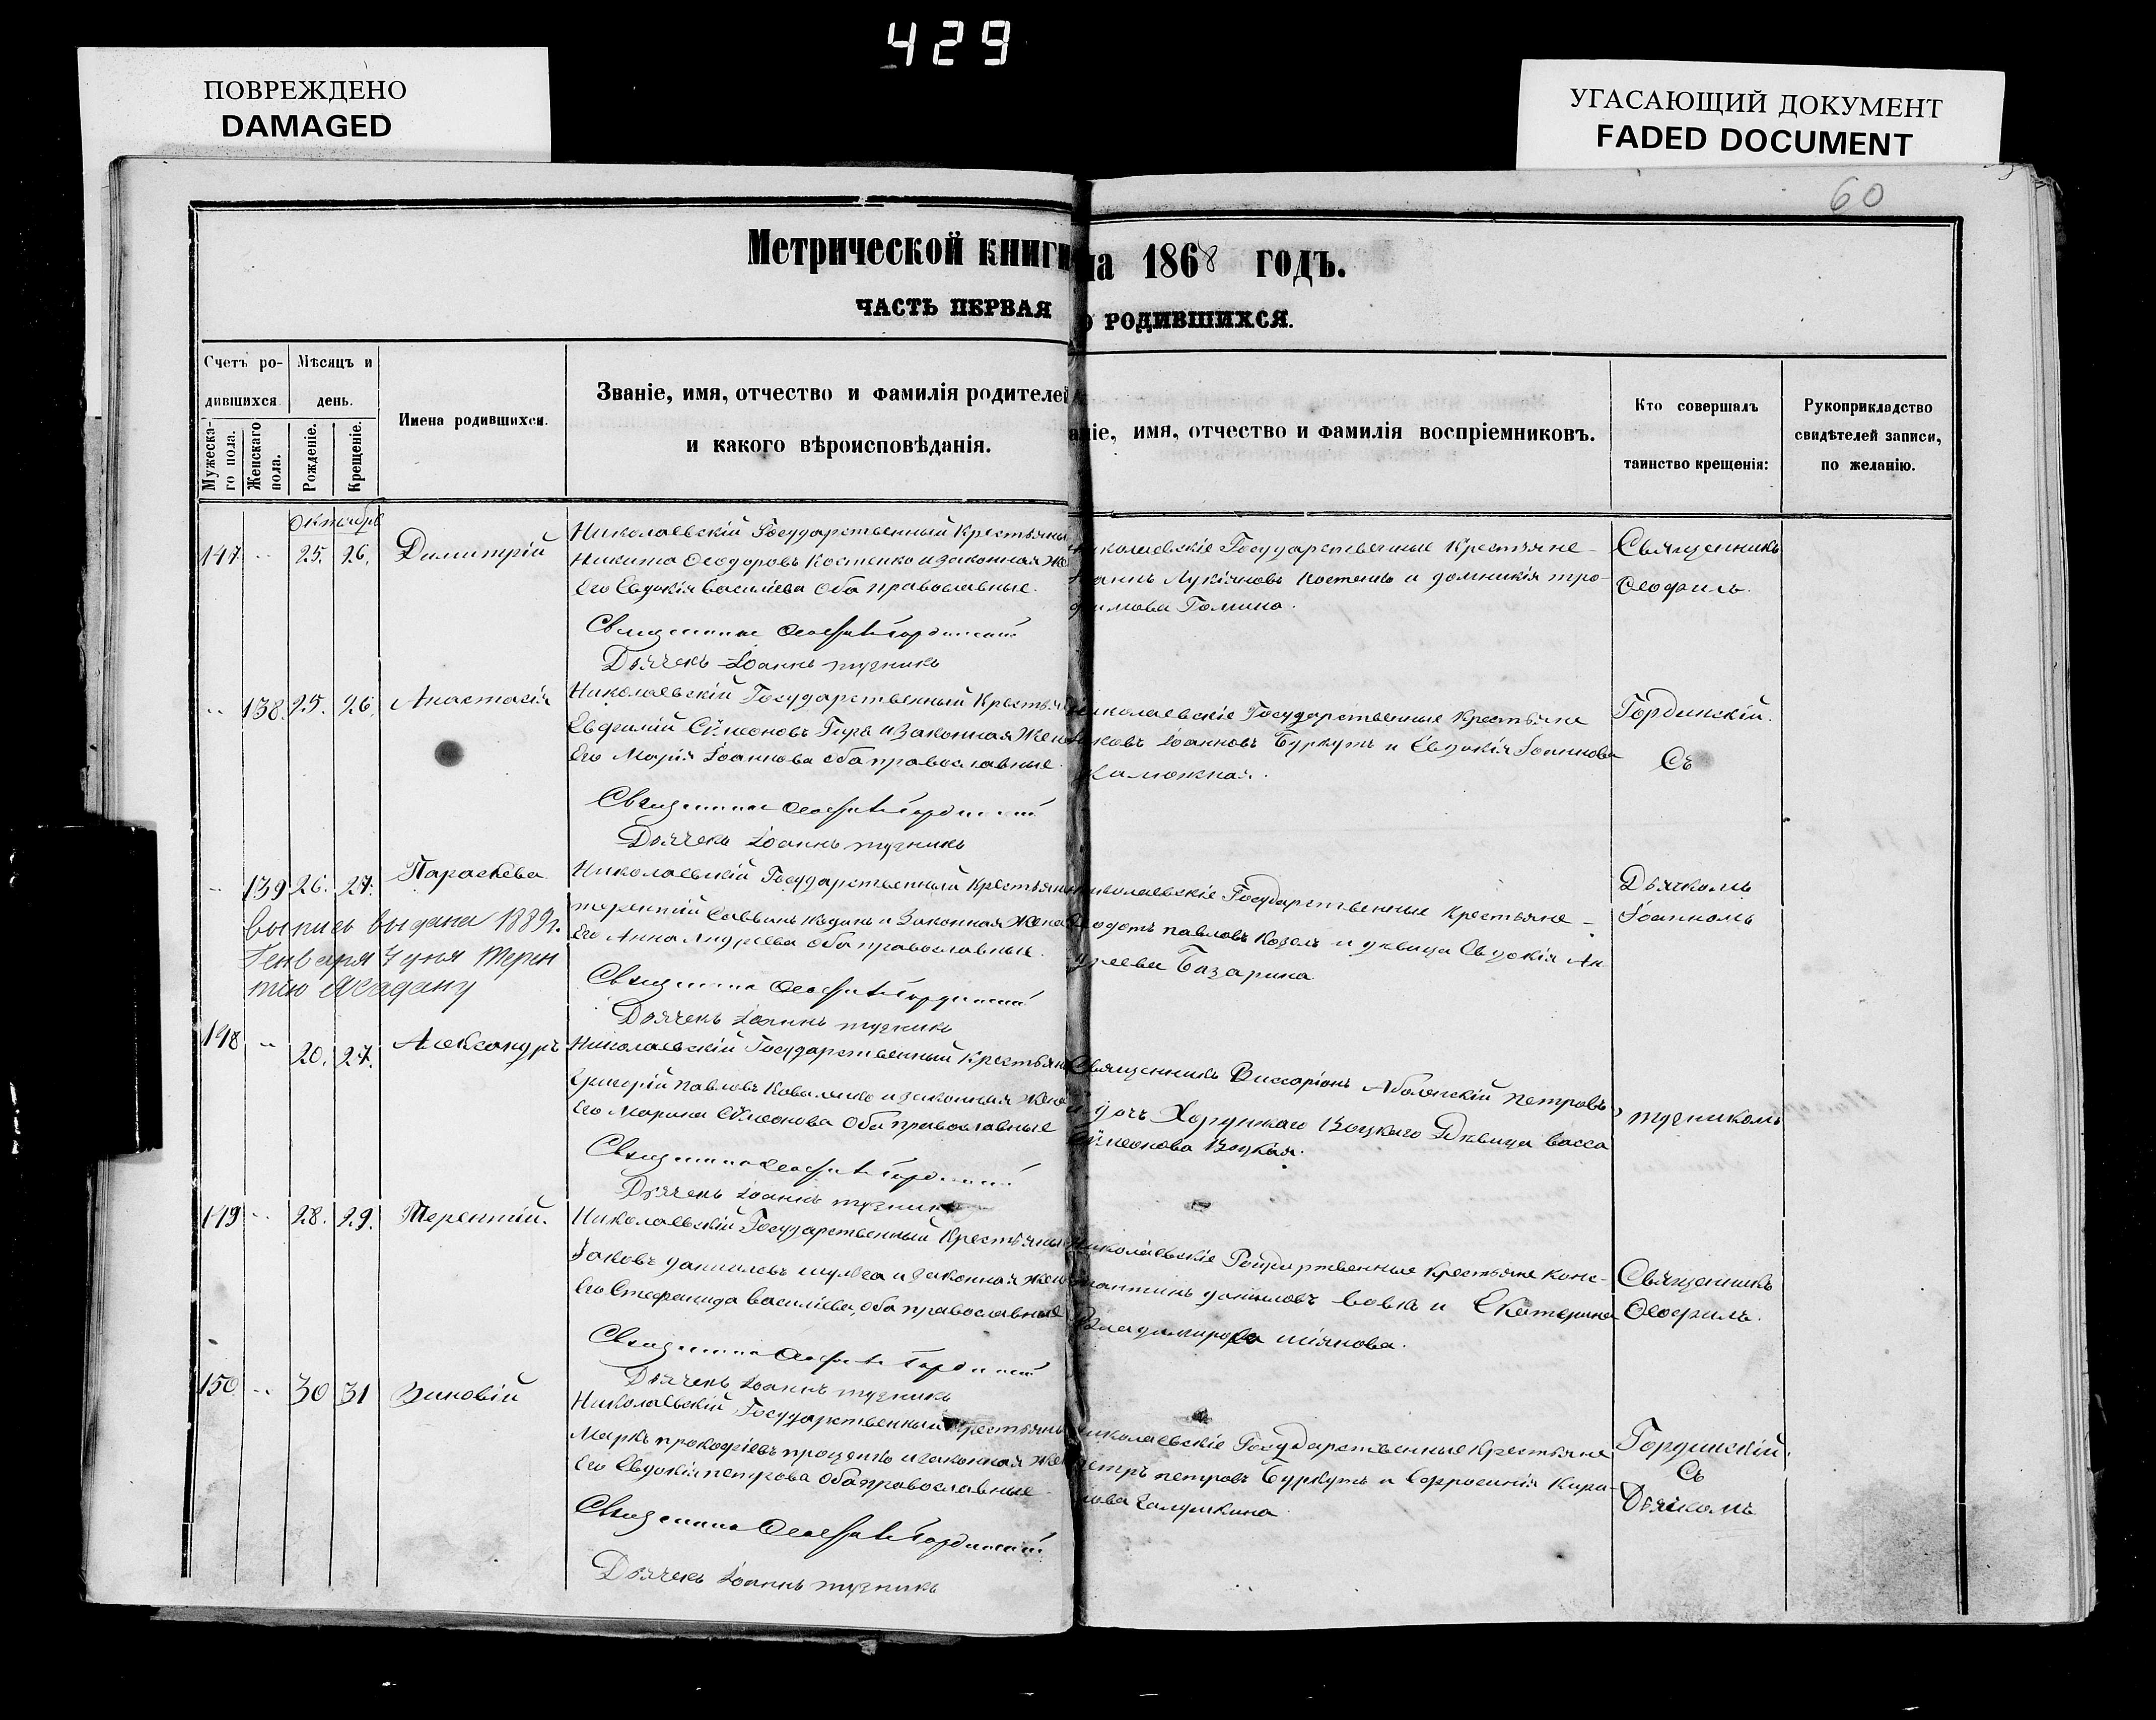 429
ПОВРЕЖДЕНО
DAMAGED
УГАСАЮЩИЙ ДОКУМЕНТ
FADED DOCUMENT
60
Метрической книги на 1868 годъ.
ЧАСТЬ ПЕРВАЯ О РОДИВШИХСЯ.
Счетъ ро-
дившихся
Мужеска-
го пола.
Женскаго
пола.
Мѣсяцъ и
день.
Рожденіе.
Крещеніе.
Имена родившихся.
Званіе, имя, отчество и фамилія родителей
и какого вѣроисповѣданія.
аніе, имя, отчество и фамилія воспріемниковъ.
Кто совершалъ
таинство крещенія:
Рукоприкладство
свидѣтелей записи,
по желанію.
Октября
147 25. 26. Димитрій
Николаевскій Государственный Крестьянинъ
Никита Ѳеодоровъ Костенко и законная жена
Его Евдокія Василіева оба православные.
Священникъ Ѳеофилъ Гординскій
Дьячекъ Іоаннъ тучникъ
Николаевскіе Государственные Крестьяне
Іоаннъ Лукіяновъ Костенко и домникія тро-
фимова Гомина.
Священникъ
Ѳеофилъ
138. 25. 26. Анастасія
Николаевскій Государственный Крестьян
Евфимій Сѵмеоновъ Гира и Законная Жена
Его Марія Іоаннова оба православные.
Священникъ Ѳеофилъ Гординскій
Дьячекъ Іоаннъ тучникъ
Николаевскіе Государственные Крестьяне
Іаковъ Іоанновъ Буркутъ и Евдокія Іоаннова
Гординскій.
Съ
139 26. 27. Параскева
Николаевскій Государственный Крестьянинъ
терентій Саввинъ и Законная Жена
Его Анна Андреева оба православные.
Священникъ Ѳеофилъ Гординскій
Дьячекъ Іоаннъ тучникъ
выпись выдана 1889г.
Генваря 7 дня Терен
тію
Николаевскіе Государственные Крестьяне
Ѳеодотъ павловъ Козелъ и дѣвица Евдокія Ан-
дреева Базарина
Дьячкомъ
Іоанномъ
148 20. 27. Александръ
Николаевскій Государственный Крестьянинъ
Григорій Павловъ Коваленко и законная Жена
Его Марина Сѵмеонова Оба православные
Священникъ Ѳеофилъ Гординскій
Дьячекъ Іоаннъ тучникъ
Священникъ Виссаріонъ Аболенскій Петровъ
и дочь Хорунжаго Воцкаго Дѣвица васса
Сѵмеонова Воцкая.
тучникомъ
149 28. 29. Терентій.
Николаевскій Государственный Крестьянинъ
Іаковъ даниловъ шульга и законная жена
Его Стефанида Василіева, оба православные
Священникъ Ѳеофилъ Гординскій
Дьячекъ Іоаннъ тучникъ
Николаевскіе Государственные Крестьяне конс-
тантинъ даниловъ вовкъ и Екатерина
Владимирова шіянова.
Священникъ
Ѳеофилъ.
150 30 31 Зиновій
Николаевскій Государственный Крестьянинъ
Маркъ прокофіевъ проценко и законная жена
Его Евдокія петрова Оба православные
Священникъ Ѳеофилъ Гординскій
Дьячекъ Іоаннъ тучникъ
Николаевскіе Государственные Крестьяне
Петръ петровъ Буркутъ и Евфросинія Кири-
лова Галушкина
Гординскій.
Съ
Дьячкомъ